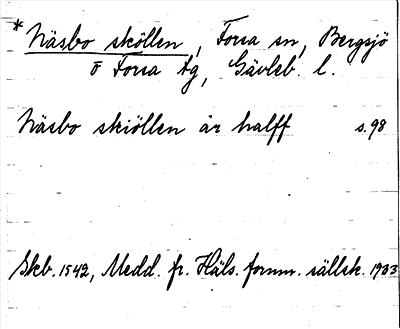 * Näsbo sköllen, Forsa sn, Bergsjö
o Forsa tg, Gävleb. l.
Näsbo skiöllen är halff s. 98
Skb. 1542, Medd. fr. Häls. fornm. sällsk. 1933